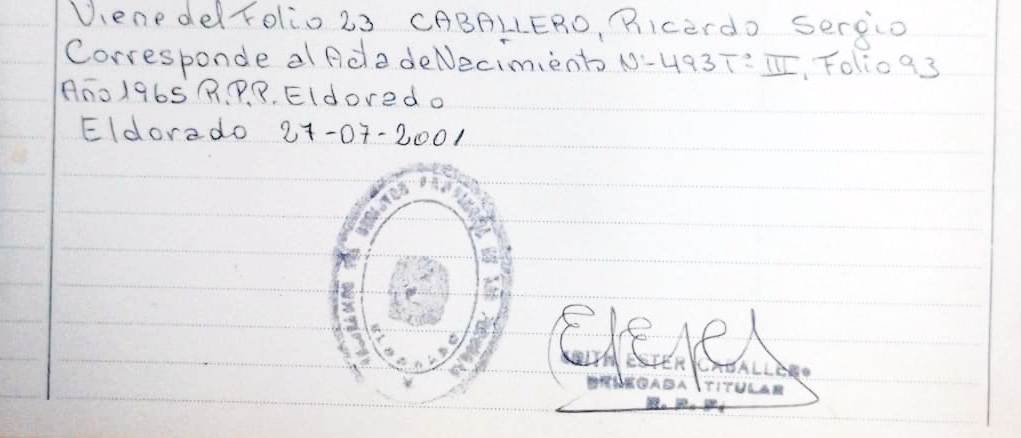 Viene del Folio 23 CABALLERO, Ricardo Sergio
Corresponde al Acta de Nacimiento Nº-493 Tº III, Folio 93
Año 1965 R.P.P. Eldorado
Eldorado 27-07-2001
ELDORADO
EDITH ESTER CABALLERO
DELEGADA TITULAR
R. P. P.